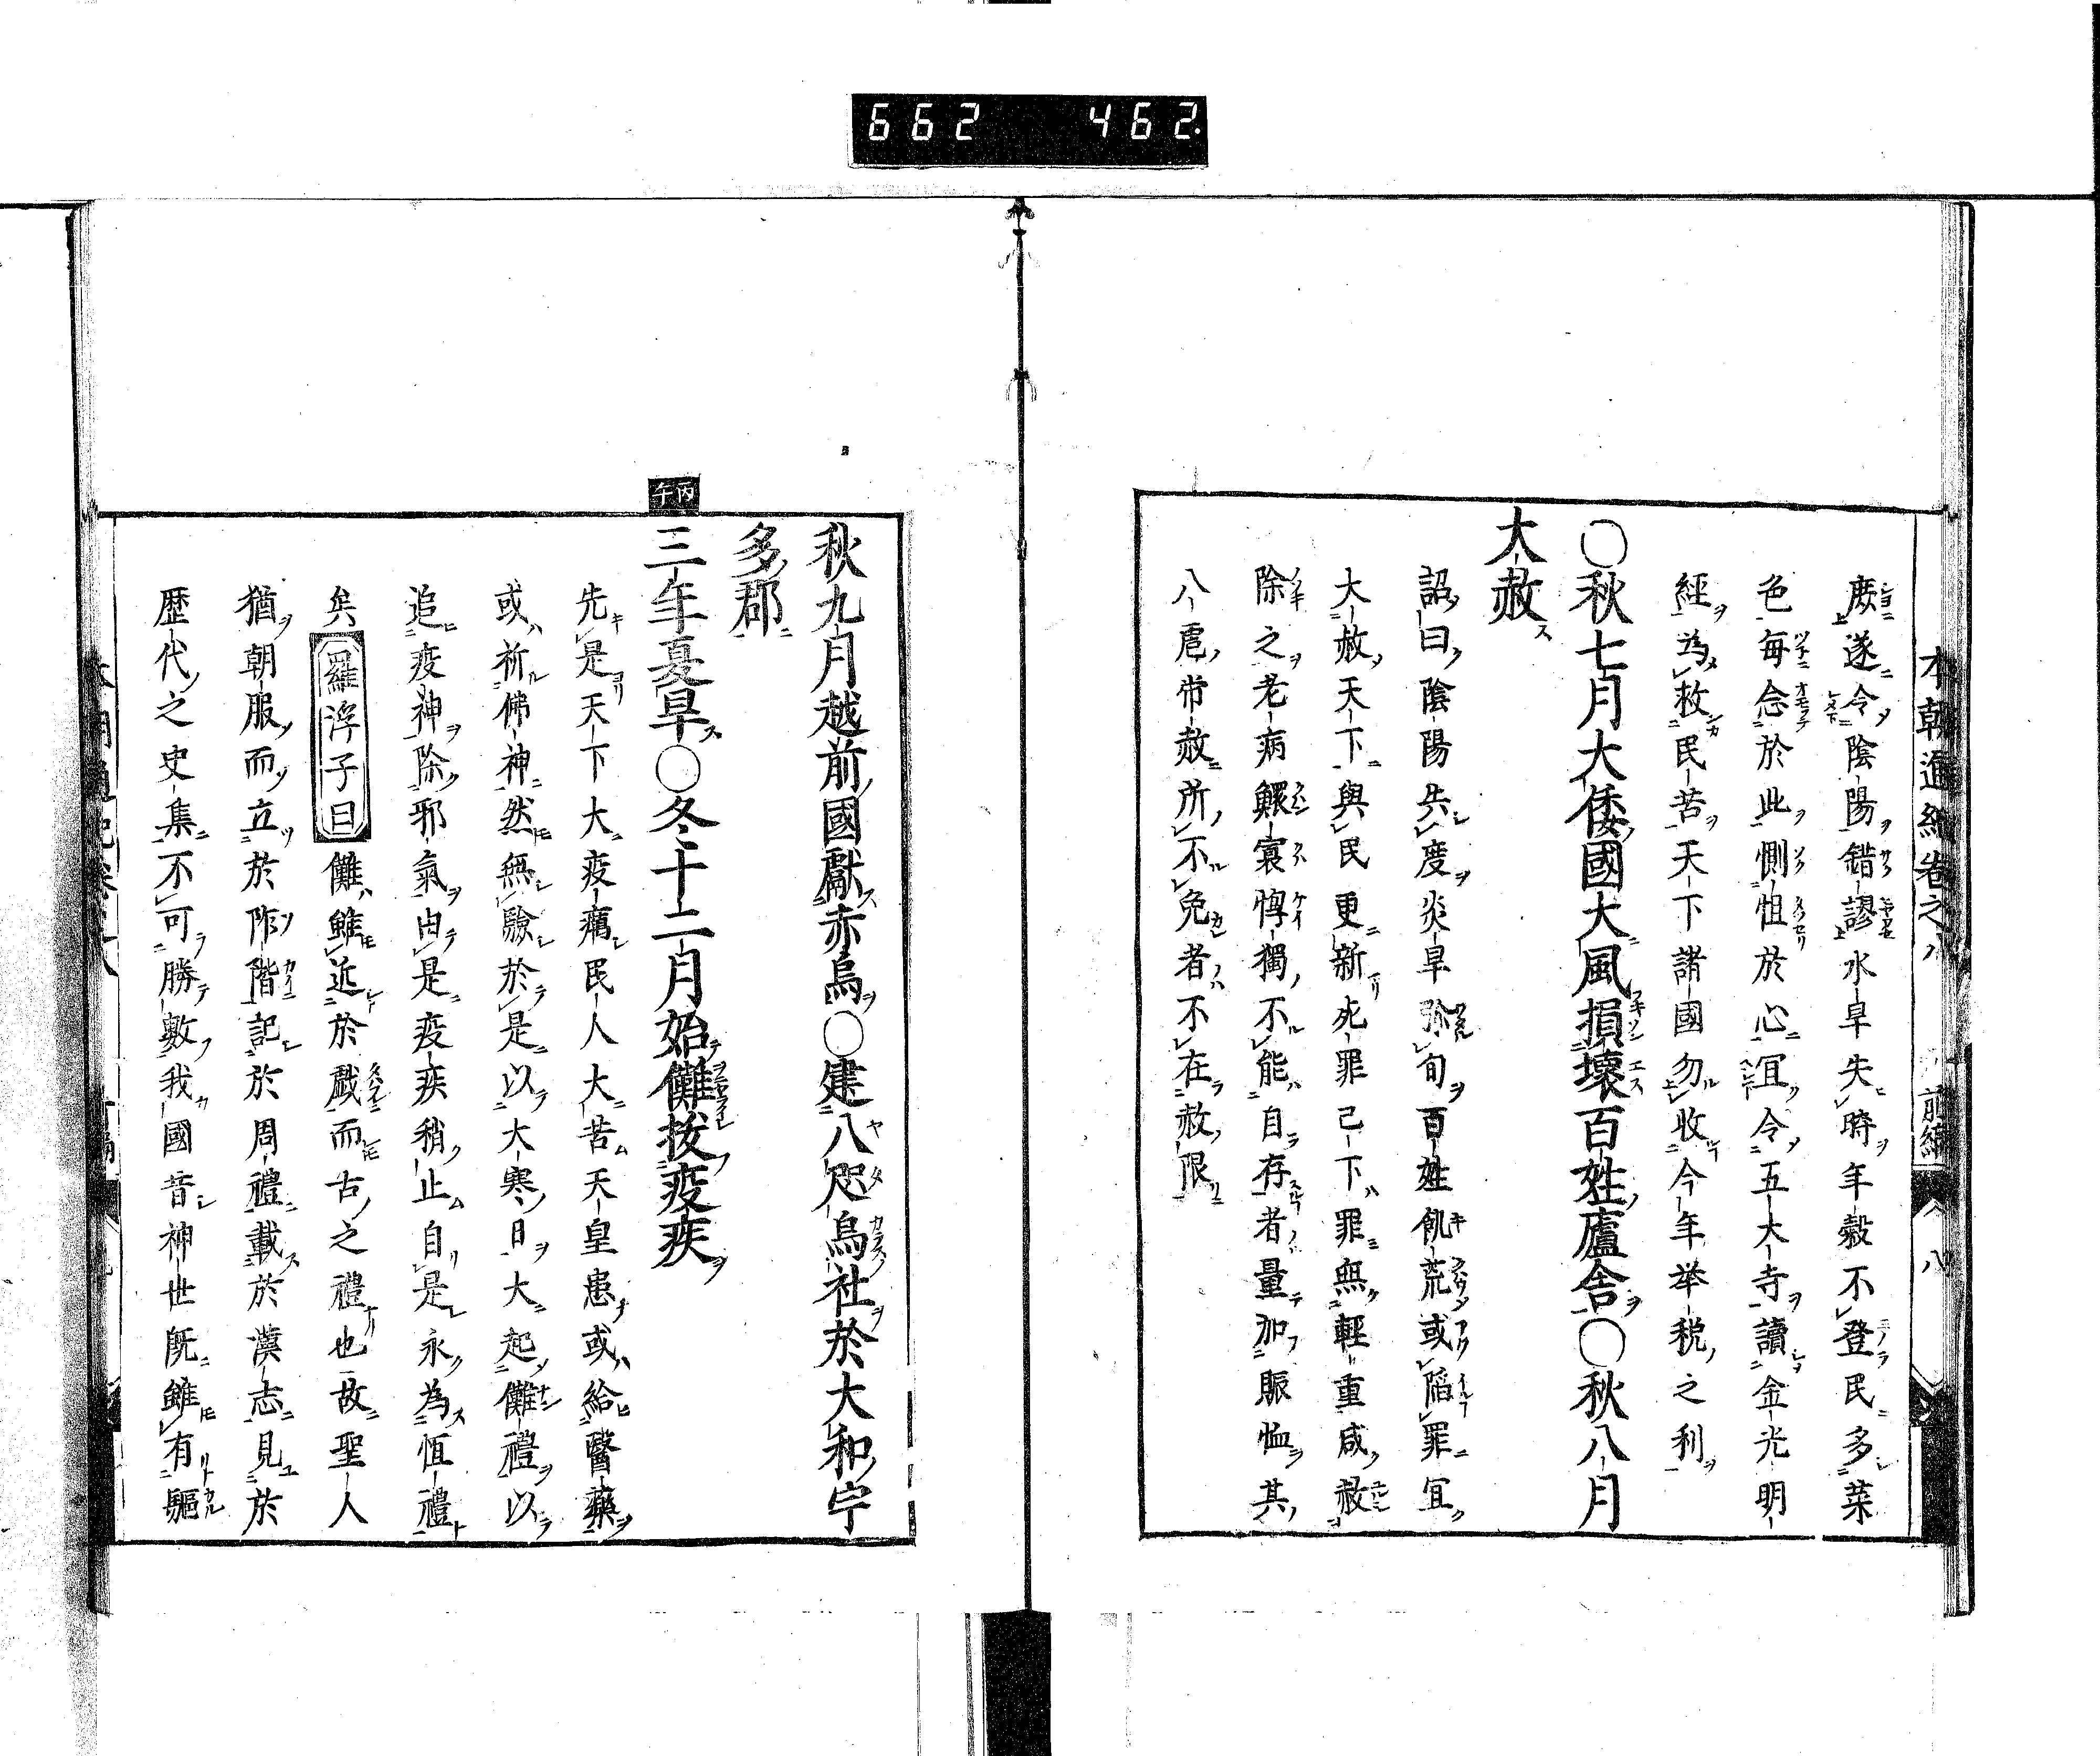 662 462.
本朝通紀卷之八 前編 八
庶遂令陰陽錯謬水旱失時年穀不登民多菜
色毎念於此惻怛於心宜令五大寺讀金光明
經為救民苦天下諸國勿收今年举税之利
〇秋七月大倭國大風損壞百姓廬舎〇秋八月
大赦
詔曰陰陽失度炎旱弥旬百姓飢荒或陥罪宜
大赦天下與民更新死罪已下罪無輕重咸赦
除之老病鰥寡惸獨不能自存者量加賑恤其
八虐常赦所不免者不在赦限
秋九月越前國獻赤烏〇建八咫烏社於大和宇
多郡
丙午
三年夏旱〇冬十二月始儺抜疫疾
先是天下大疫癘民人大苦天皇患或給醫藥
或祈佛神然無驗於是以大寒日大起儺禮以
追疫神除邪氣由是疫疾稍止自是永為恒禮
矣羅浮子曰儺雖近於戯而古之禮也故聖人
猶朝服而立於阼階記於周禮載於漢志見於
歴代之史集不可勝數我國昔神世既雖有驅